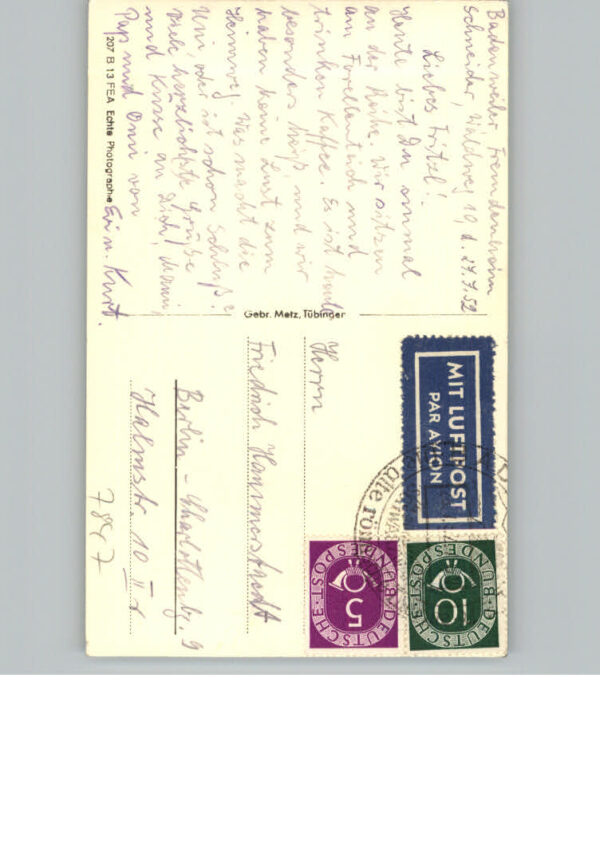 Badenweiler Fremdenheim
Schneider, Waldweg 19, d. 27.7.52
Liebes Fritzl!
Heute bist Du einmal
an der Reihe. Wir sitzen
am Forellenteich und
trinken Kaffee. Es ist heute
besonders heiß, und wir
haben keine Lust zum
Heimweg. Was macht die
Uni, oder ist schon Schluß?
Viele herzlichste Grüße
und Küsse an Dich, Mammi,
Pap und Omi von
Evi u. Kurt.
207 B 13 FEA Echte Photographie
Gebr. Metz, Tübingen
MIT LUFTPOST
PAR AVION
DEUTSCHE BUNDESPOST
5
DEUTSCHE BUNDESPOST
10
alte
Herrn
Friedrich
Berlin-Charlottenbg. 9
Halmstr. 10 II r